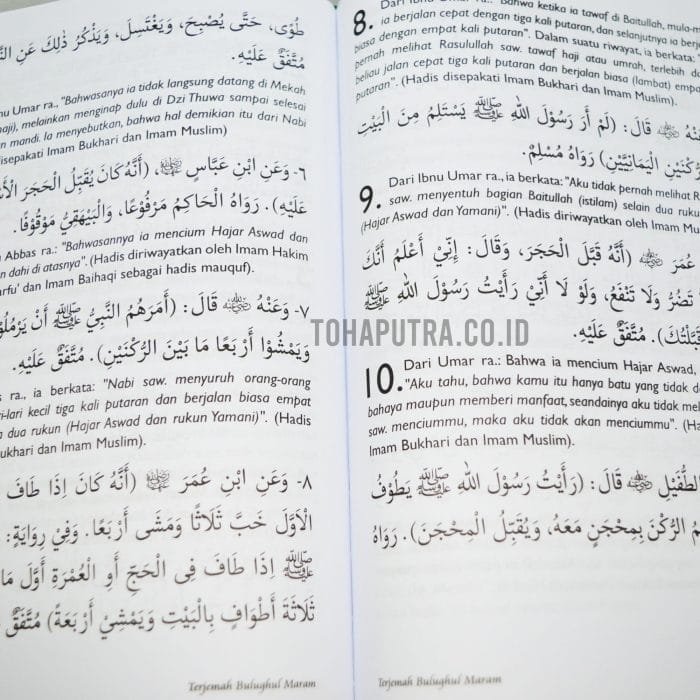 طُوًى، حَتَّى يُصْبِحَ، وَيَغْتَسِلَ، وَيَذْكُرُ ذٰلِكَ عَنِ
مُتَّفَقٌ عَلَيْهِ.
Umar ra., "Bahwasanya ia tidak langsung datang di Mekah
melainkan menginap dulu di Dzi Thuwa sampai selesai
mandi. Ia menyebutkan, bahwa hal demikian itu dari Nabi
Imam Bukhari dan Imam Muslim)
٦- وَعَنِ ابْنِ عَبَّاسٍ ﷺ، (أَنَّهُ كَانَ يُقَبِّلُ الْحَجَرَ
عَلَيْهِ). رَوَاهُ الْحَاكِمُ مَرْفُوْعًا، وَالْبَيْهَقِيُّ مَوْقُوْفًا.
Abbas ra.: "Bahwasannya ia mencium Hajar Aswad dan
dahi di atasnya". (Hadis diriwayatkan oleh Imam Hakim
dan Imam Baihaqi sebagai hadis mauquf).
٧- وَعَنْهُ قَالَ: (أَمَرَهُمُ النَّبِيُّ ﷺ أَنْ يَرْمُلُوْا
وَيَمْشُوْا أَرْبَعًا مَا بَيْنَ الرُّكْنَيْنِ). مُتَّفَقٌ عَلَيْهِ.
ra., ia berkata: "Nabi saw. menyuruh orang-orang
kecil tiga kali putaran dan berjalan biasa empat
dua rukun (Hajar Aswad dan rukun Yamani)". (Hadis
Bukhari dan Imam Muslim).
٨- وَعَنِ ابْنِ عُمَرَ (أَنَّهُ كَانَ إِذَا طَافَ
الْأَوَّلَ خَبَّ ثَلَاثًا وَمَشَى أَرْبَعًا. وَفِي رِوَايَةٍ:
ﷺ إِذَا طَافَ فِى الْحَجِّ أَوِ الْعُمْرَةِ أَوَّلَ مَا
ثَلَاثَةَ أَطْوَافٍ بِالْبَيْتِ وَيَمْشِيْ أَرْبَعَةً) مُتَّفَقٌ
Terjemah Bulughul Maram
8. Dari Ibnu Umar ra.: "Bahwa ketika ia tawaf di Baitullah,
ia berjalan cepat dengan tiga kali putaran, dan selanjutnya ia
biasa dengan empat kali putaran". Dalam suatu riwayat, ia berkata:
pernah melihat Rasulullah saw. tawaf haji atau umrah, terlebih
beliau jalan cepat tiga kali putaran dan berjalan biasa (lambat) empat
putaran". (Hadis disepakati Imam Bukhari dan Imam Muslim).
قَالَ: (لَمْ أَرَ رَسُوْلَ اللهِ ﷺ يَسْتَلِمُ مِنَ الْبَيْتِ
الْيَمَانِيَيْنِ) رَوَاهُ مُسْلِمٌ.
9. Dari Ibnu Umar ra., ia berkata: "Aku tidak pernah melihat
saw. menyentuh bagian Baitullah (istilam) selain dua
(Hajar Aswad dan Yamani)". (Hadis diriwayatkan oleh Imam
عُمَرَ (أَنَّهُ قَبَّلَ الْحَجَرَ، وَقَالَ: إِنِّيْ أَعْلَمُ أَنَّكَ
تَضُرُّ وَلَا تَنْفَعُ، وَلَوْ لَا أَنِّيْ رَأَيْتُ رَسُوْلَ اللهِ ﷺ
مُتَّفَقٌ عَلَيْهِ.
TOHAPUTRA.CO.ID
10. Dari Umar ra.: Bahwa ia mencium Hajar Aswad,
"Aku tahu, bahwa kamu itu hanya batu yang tidak
bahaya maupun memberi manfaat, seandainya aku tidak
saw. menciummu, maka aku tidak akan menciummu".
Imam Bukhari dan Imam Muslim).
الطُّفَيْلِ قَالَ: (رَأَيْتُ رَسُوْلَ اللهِ ﷺ يَطُوْفُ
الرُّكْنَ بِمِحْجَنٍ مَعَهُ، وَيُقَبِّلُ الْمِحْجَنَ). رَوَاهُ
Terjemah Bulughul Maram